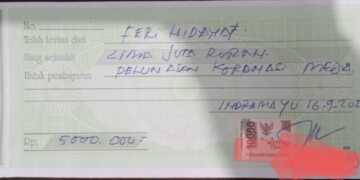 No.
Telah terima dari FERI HIDAYAT
Uang sejumlah LIMA JUTA RUPIAH
Untuk pembayaran PELUNASAN KORDINASI MEDIA
INDRAMAYU 16.9.202
Rp. 5000.000:-
10000